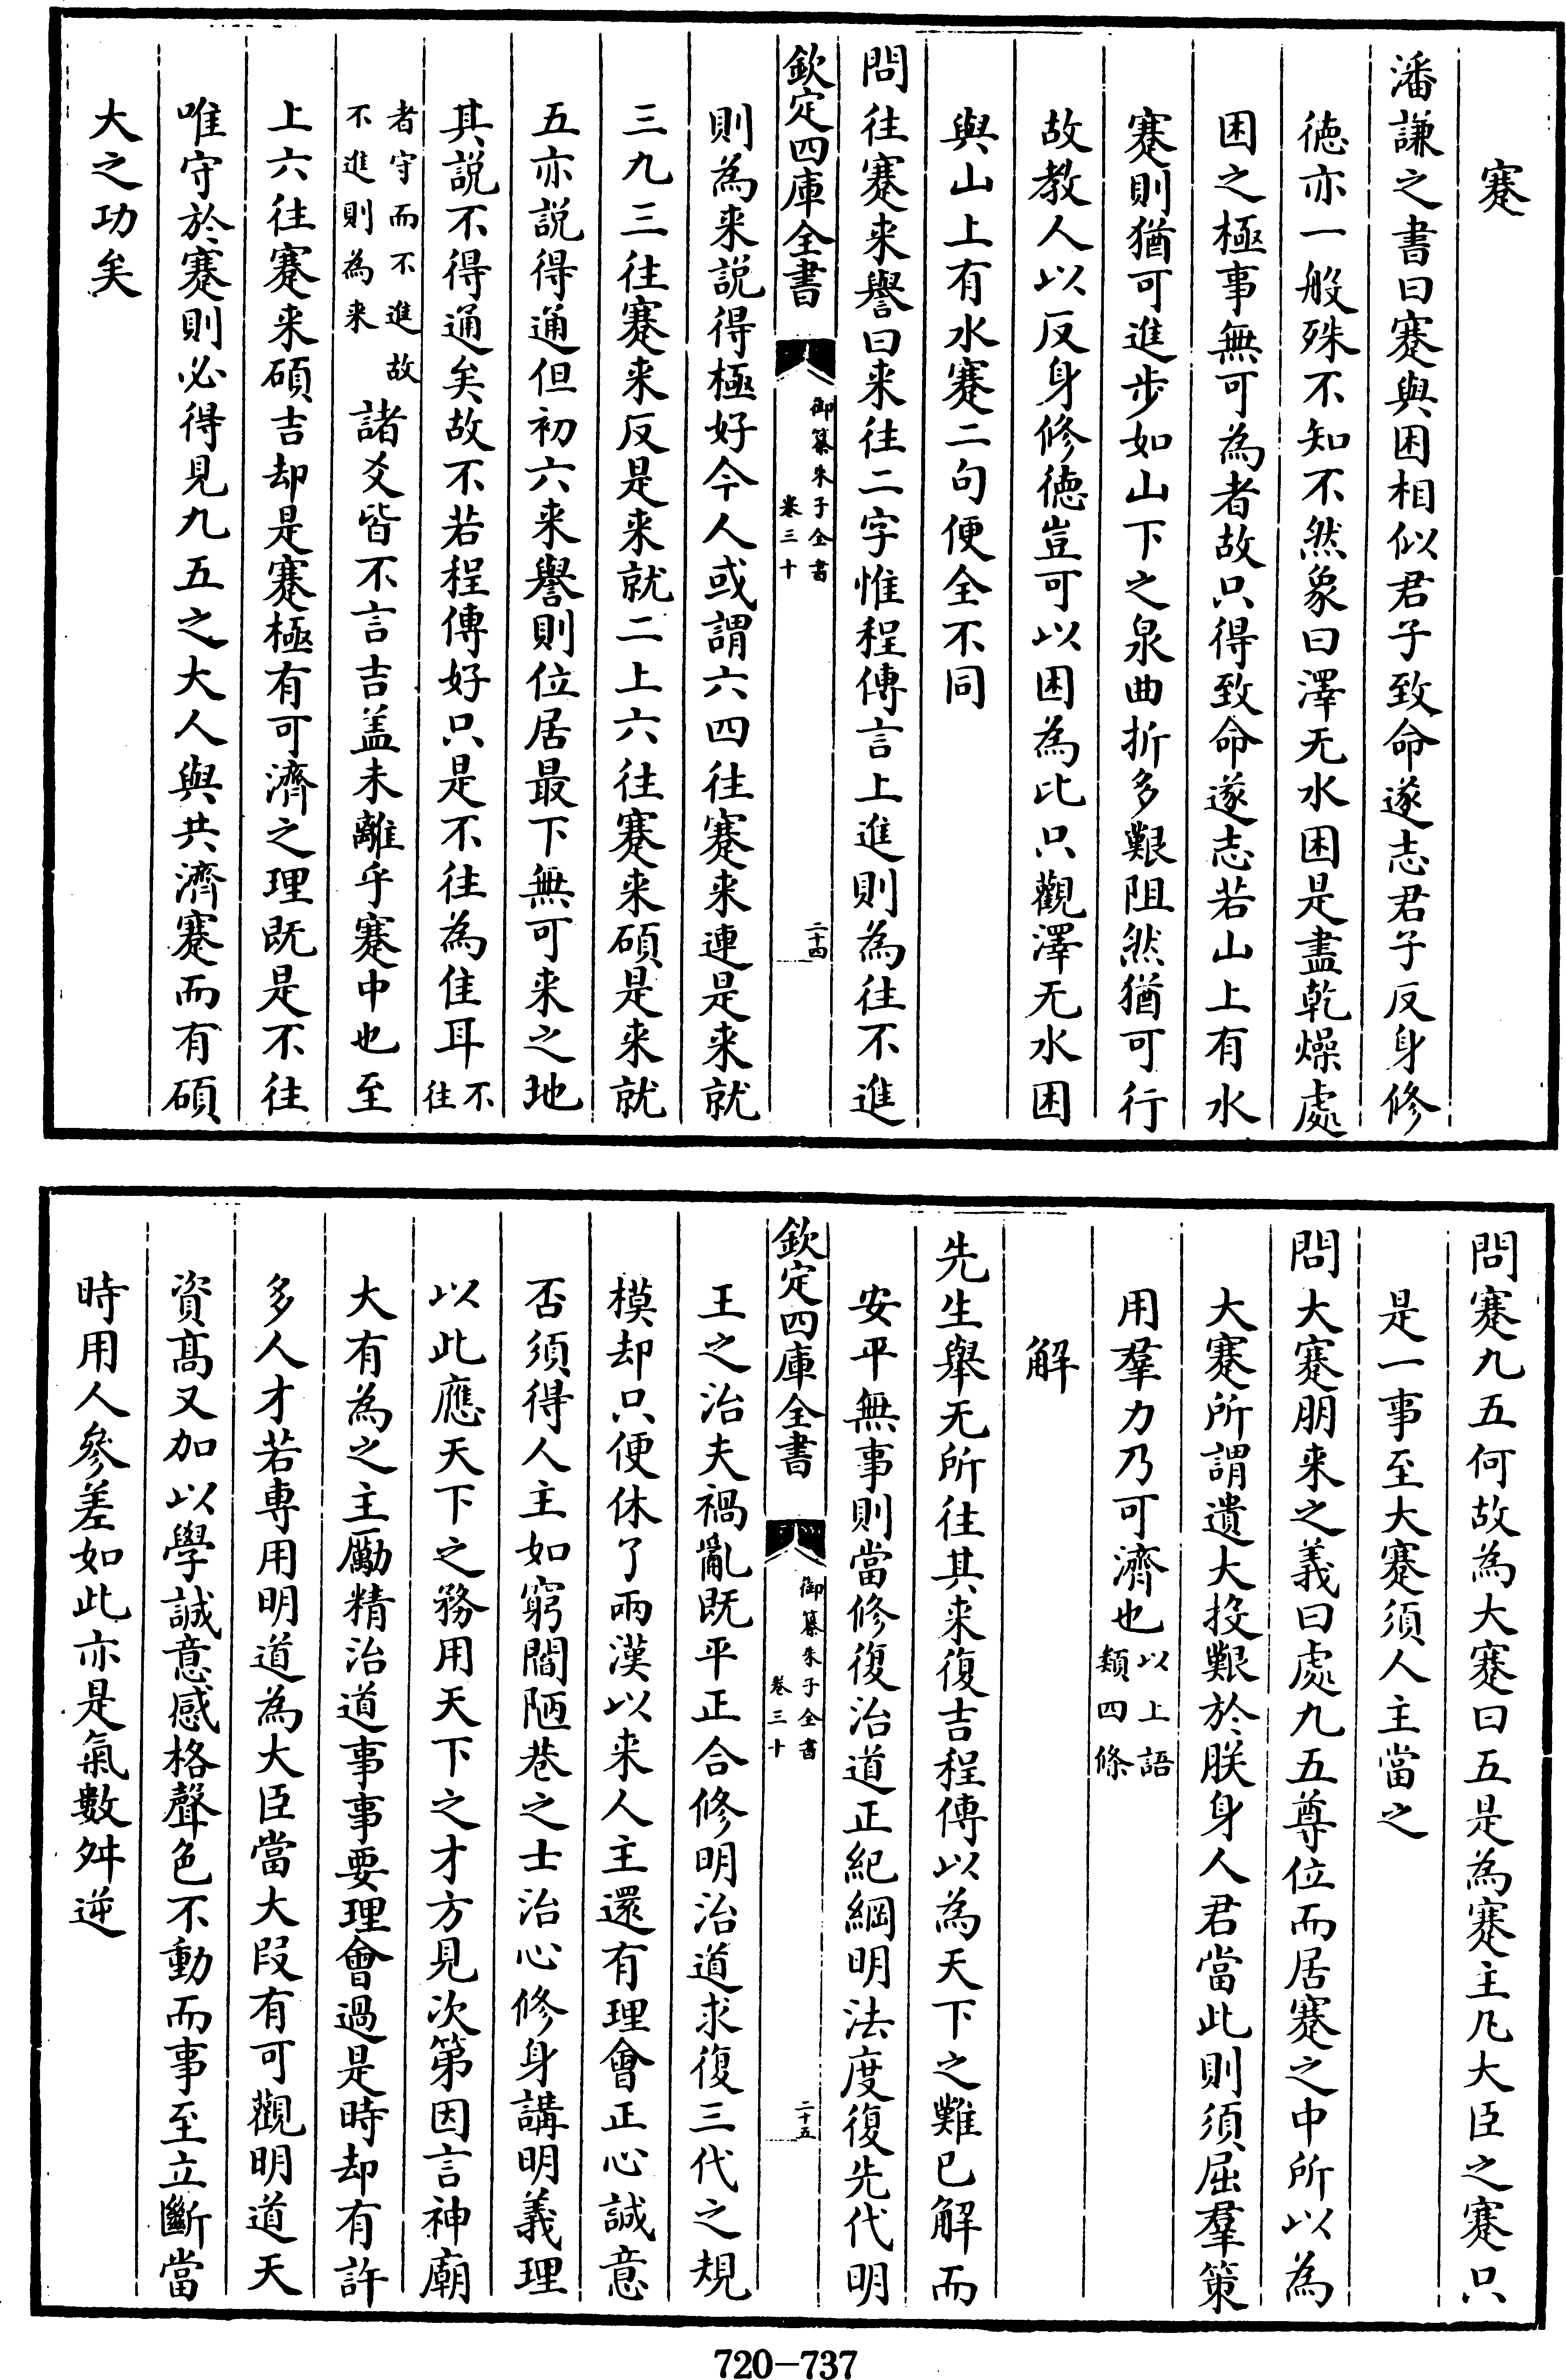 蹇
潘謙之書曰蹇與困相似君子致命遂志君子反身修
徳亦一般殊不知不然象曰澤无水困是盡乾燥處
困之極事無可為者故只得致命遂志若山上有水
蹇則猶可進步如山下之泉曲折多艱阻然猶可行
故教人以反身修徳豈可以困為比只觀澤无水困
與山上有水蹇二句便全不同
問往蹇来譽曰来往二字惟程傳言上進則為往不進
欽定四庫全書
御纂朱子全書
卷三十
二十四
則為来説得極好今人或謂六四往蹇来連是来就
三九三往蹇来反是来就二上六往蹇来碩是来就
五亦説得通但初六来譽則位居最下無可来之地
其説不得通矣故不若程傳好只是不往為佳耳不往
者守而不進故不進則為来諸爻皆不言吉盖未離乎蹇中也至
上六往蹇来碩吉却是蹇極有可濟之理既是不往
唯守於蹇則必得見九五之大人與共濟蹇而有碩
大之功矣
問蹇九五何故為大蹇曰五是為蹇主凡大臣之蹇只
是一事至大蹇須人主當之
問大蹇朋来之義曰處九五尊位而居蹇之中所以為
大蹇所謂遺大投艱於朕身人君當此則須屈羣策
用羣力乃可濟也以上語類四條
解
先生舉无所往其来復吉程傳以為天下之難已解而
安平無事則當修復治道正紀綱明法度復先代明
欽定四庫全書
御纂朱子全書
卷三十
二十五
王之治夫禍亂既平正合修明治道求復三代之規
模却只便休了兩漢以来人主還有理會正心誠意
否須得人主如窮閻陋巷之士治心修身講明義理
以此應天下之務用天下之才方見次第因言神廟
大有為之主勵精治道事事要理會過是時却有許
多人才若専用明道為大臣當大段有可觀明道天
資髙又加以學誠意感格聲色不動而事至立斷當
時用人參差如此亦是氣數舛逆
720-737